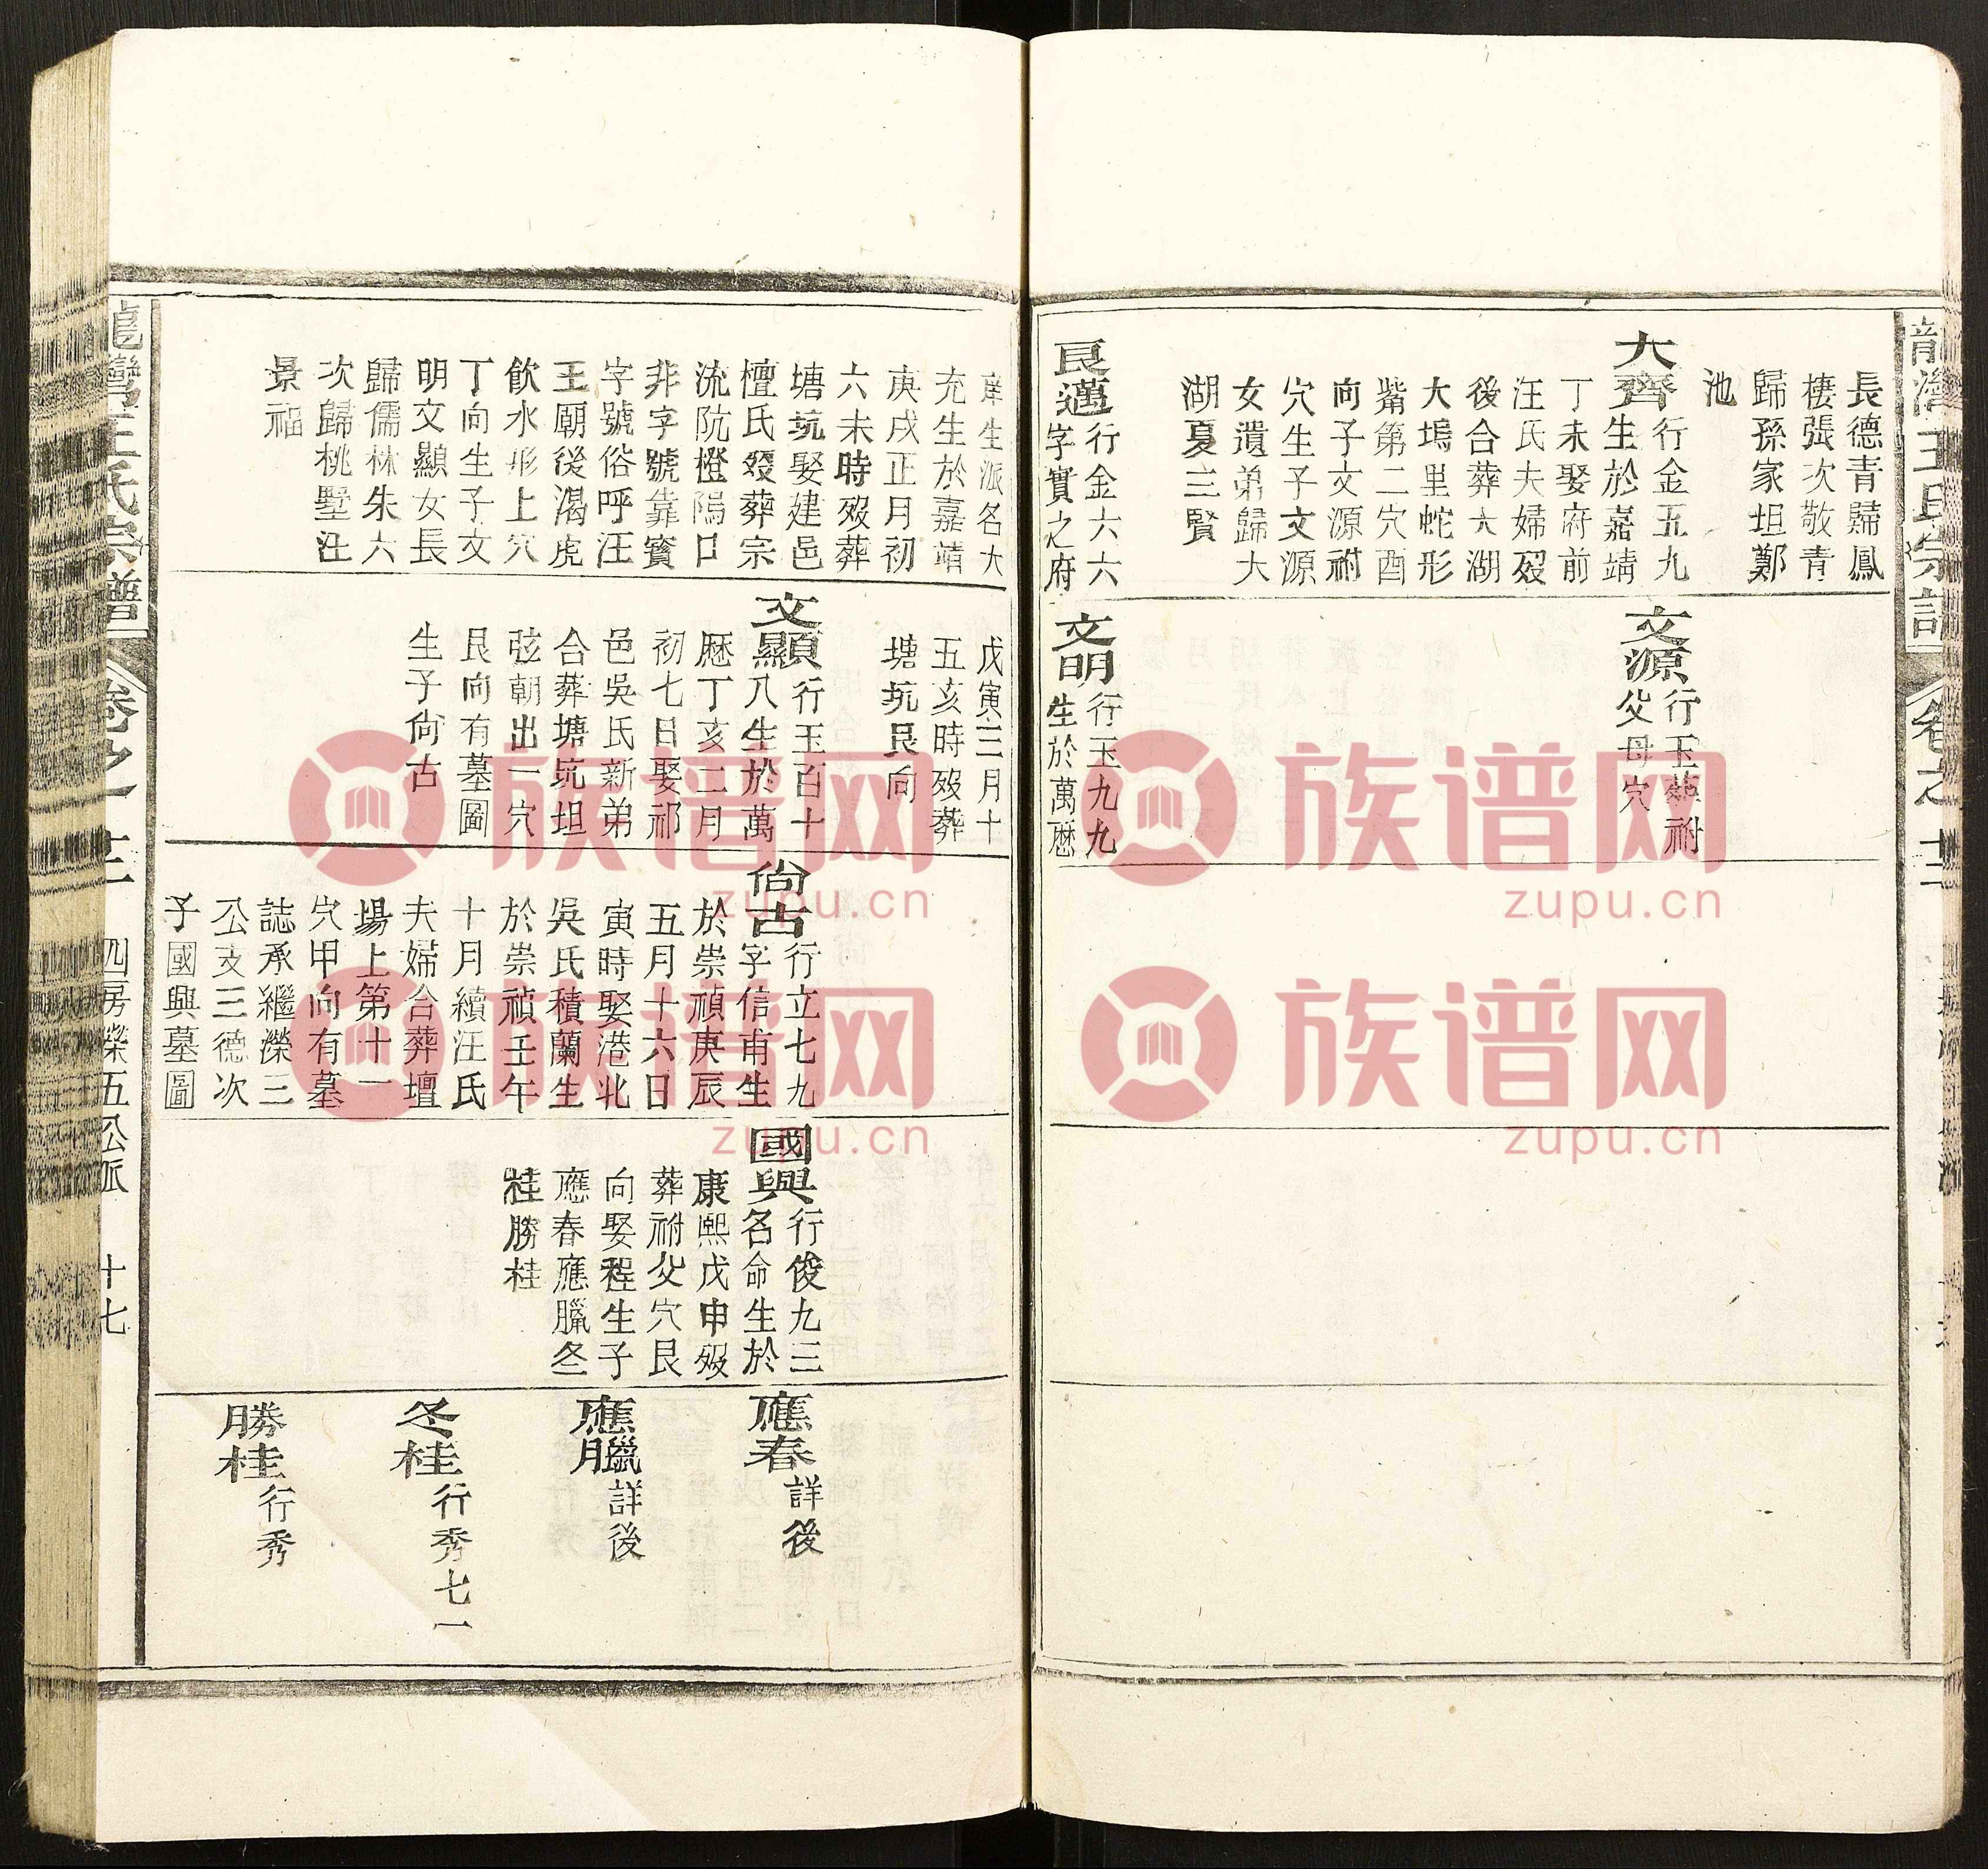 長德青歸鳳
棲張次敬青
歸孫家坦鄭
池
大齊行金五九
生於嘉靖
丁未娶府前
汪氏夫婦歿
後合葬大湖
大塢里蛇形
觜第二穴酉
向子文源祔
穴生子文源
女遺弟歸大
湖夏三賢
良邁行金六六
字實之府
文源行玉 祔
父母穴
文明行玉九九
生於萬曆
庠生派名大
充生於嘉靖
庚戌正月初
六未時歿葬
塘坑娶建邑
檀氏歿葬宗
流阬橙隖口
非字號靠寳
字號俗呼汪
王廟後渴虎
飲水形上穴
丁向生子文
明文顯女長
歸儒林朱六
次歸桃墅汪
景福
戊寅三月十
五亥時歿葬
塘坑艮向
文顯行玉百十
八生於萬
曆丁亥二月
初七日娶祁
邑吳氏新弟
合葬塘坑坦
弦朝出一穴
艮向有墓圖
生子尙古
尙古行立七九
字信甫生
於崇禎庚辰
五月十六日
寅時娶港北
吳氏積蘭生
於崇禎壬午
十月續汪氏
夫婦合葬壇
場上第十一
穴甲向有墓
誌承繼濼三
公支三德次
子國興墓圖
國興行俊九三
名命生於
康熙戊申歿
葬祔父穴艮
向娶程生子
應春應臘冬
桂勝桂
應春詳後
應臘詳後
冬桂行秀七一
勝桂行秀
龍灣王氏宗譜 卷之十二 四房濼五公派 十七